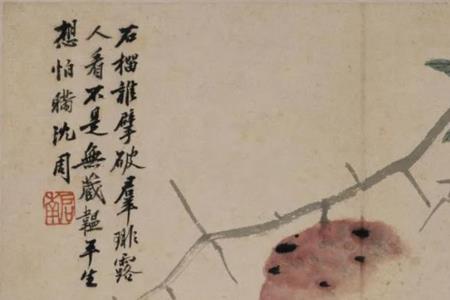 石榴誰擘破群琲露
人看不是無藏韞平生
想怕瞞沈周